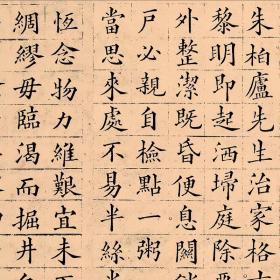 朱柏廬先生治家格
黎明即起洒埽庭除
外整潔既昏便息關
戶必親自檢點一粥
當思來處不易半絲
恆念物力維艱宜未
綢繆毋臨渴而掘井